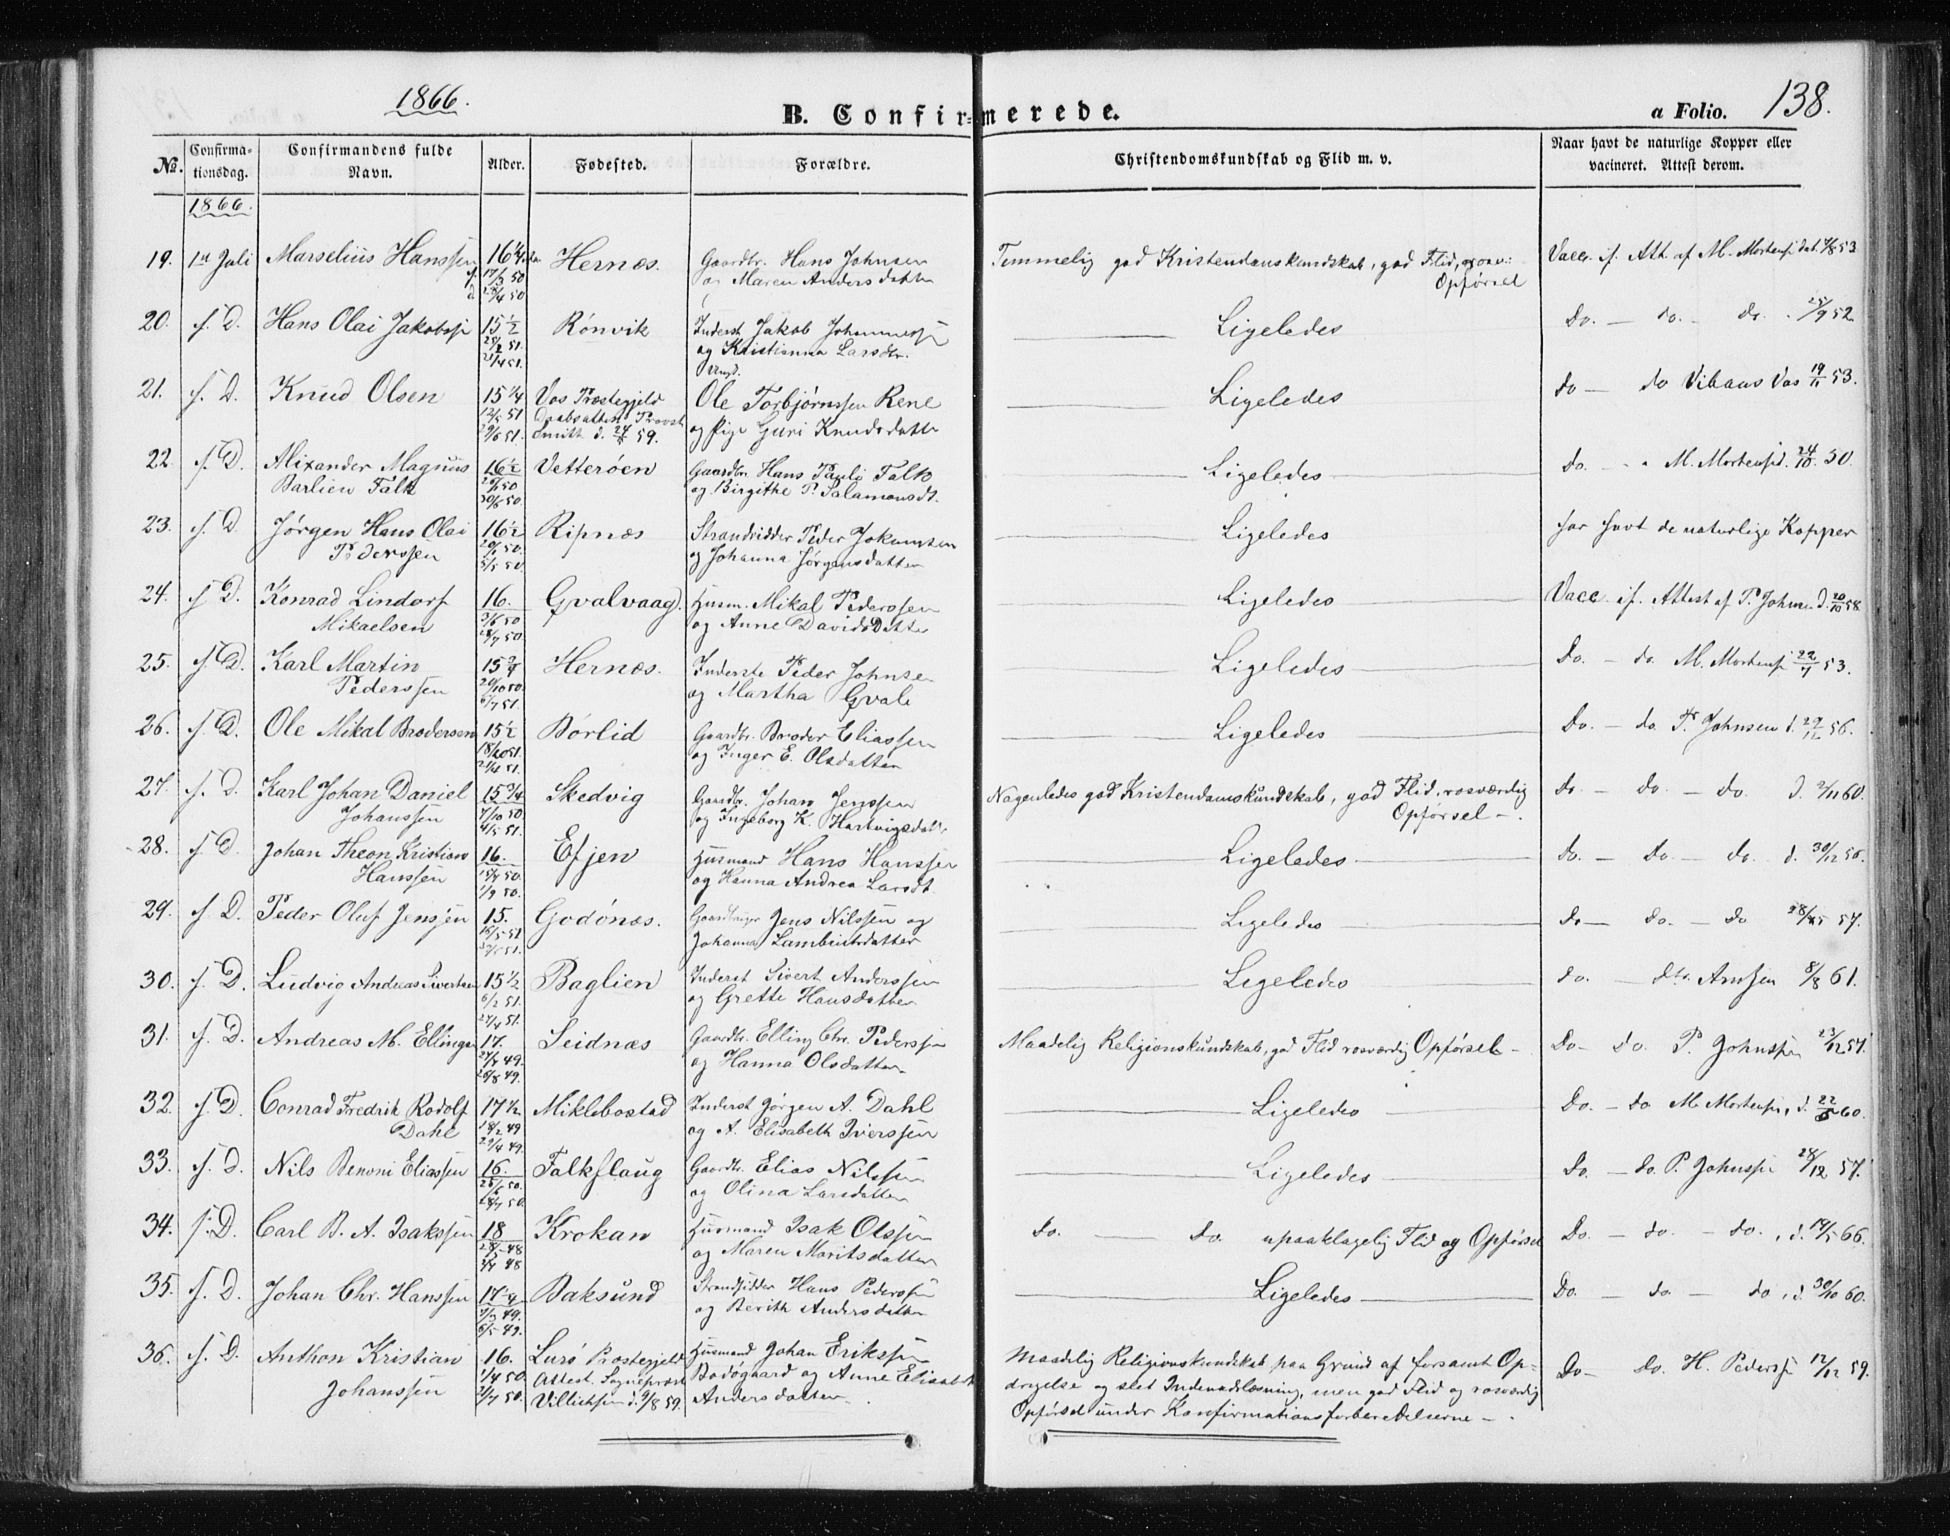 1866.
B. Confirmerede.
a Folio. 138.
No. Confirmationsdag. Confirmandens fulde Navn. Alder. Fødested. Forældre. Christendomskundskab og Flid m. v. Naar havt de naturlige Kopper eller vacineret. Attest derom.
1866.
19. 1st Juli Marselius Hanssen 16 1/4 Hernæs. Gaardbr. Hans Johnsen Temmelig god Kristendomskundskab, god Flid, Vacc. if. Att. af M. Mortensen 53
f. 17/3 50 og Maren Andersdatter Opførsel
d. 28/4 50
20. s. D. Hans Olai Jakobsen 15 1/2 Rønvik Inderst Jakob Ligeledes Do. — do. — do. 52
51. og Kristianna Larsdtr.
21/4 51.
21. s. D. Knud Olsen 15 1/4 Vos Præstegjeld Ungk. Ole Torbjørnssen Rene Ligeledes do — do Vibaus Vos 19/11 53.
12/5 51 Provst og Pige Guri Knudsdatter
29/6 51. Smith d. 59.
22. s. D. Alixander Magnus 16 1/2 Vetterøen Gaardbr. Hans Pauli Falk Ligeledes do. M. Mortens d. 24/10 50.
Barlien Falk og Birgithe P. Salamonsdt.
23. s. D. Jørgen Hans Olai 16 1/2 Ripnæs Strandsidder Peder Jokumsen Ligeledes har havt de naturlige Kopper
Pederssen 5/5 50 og Johanna Jørgensdatter
24. s. D. Konrad Lindorf 16. Gvalvaag. Husm. Mikal Pederssen Ligeledes Vacc. if. Attest af P. Johnsen d. 20/10 58.
Mikaelsen 3/6 50 28/7 50 og Anne Davidsdatter
25. s. D. Karl Martin 15 3/4 Hernæs. Inderste Peder Johnsen Ligeledes Do. — do. M. Mortensen 22/7 53.
Pederssen 20/10 50. 6/7 51. og Martha Gvale
26. s. D. Ole Mikal Brodersen 15 1/2 Børlid Gaardbr. Broder Eliassen Ligeledes Do. — do. P. Johnsen d. 29/12 56.
51. og Inger E. Olsdatter
27. s. D. Karl Johan Daniel 15 3/4 Skedvig Gaardbr. Johan Jenssen Nogenledes god Kristendomskundskab, god Flid, rosværdig do — do. — do. d. 2/11 60.
Johanssen 7/10 50. 4/5 51. og Ingeborg K. Hartvigsdatt. Opførsel —.
28. s. D. Johan Theon Kristian 16. Efjen Husmand Hans Hanssen Ligeledes do. — Do — do. d. 30/12 56.
Hanssen 15/7 50. 1/9 50. og Hanna Andrea Larsdt
29. s. D. Peder Oluf Jensen 15. Godønæs. Gaardbruger Jens Nilssen og Ligeledes Do — do. — do 57.
15/5 51 Johanna Lambertsdatter
30. s. D. Ludvig Andreas Sivertsen 15 1/2 Baglien Inderst Sivert Anderssen Ligeledes do. — dto. Arnsen 8/8 61.
6/2 51. 27/4 51. og Grette Hansdatter
31. s. D. Andreas M. Ellingsen 17. Seidnæs Gaardbr. Elling Chr. Pederssen Maadelig Religionskundskab, god Flid rosværdig Opførsel — Do — do. P. Johnssen 23/12 57.
49. 26/8 49. og Hanna Olsdatter
32. s. D. Conrad Fredrik Rodolf 17 1/2 Miklebostad Inderst Jørgen A. Dahl Ligeledes Do. — do M. Mortensen, d. 60.
Dahl 18/2 49 29/4 49. og A. Elisabeth Iverssen
33. s. D. Nils Benoni Eliassen 16. Falkflaug Gaardbr. Elias Nilssen Ligeledes Do. — do. P. Johnssen 28/12 57.
50. 28/7 50. og Olina Larsdatter
34. s. D. Carl B. A. Isakssen 18 Krokan Husmand Isak Olssen do. — do. upaaklagelig Flid og Opførsel Do. — do — do. , d. 14/5 66.
48 48 og Maren Moritsdatter
35. s. D. Johan Chr. Hanssen 17 1/4 Baksund Strandsidder Hans Pederssen Ligeledes Do. — do — do , d. 30/10 60.
7/3 49. 6/5 49. og Berith Andersdatter
36. s. D. Anthon Kristian 16. Lurø Præstegjeld Husmand Johan Erikssen Maadelig Religionskundskab paa Grund af forsømt Op- Do — do. H. Pederssen 12/12 59.
Johanssen 1/4 50. Attest. Sognepræst Bodøgaard og Anne Elisabet dragelse og slet Indenadlæsning, men god Flid og rosværdig
21/7 50. d. 9/8 59. Andersdatter. Opførsel under Konfirmationsforberedelserne —.